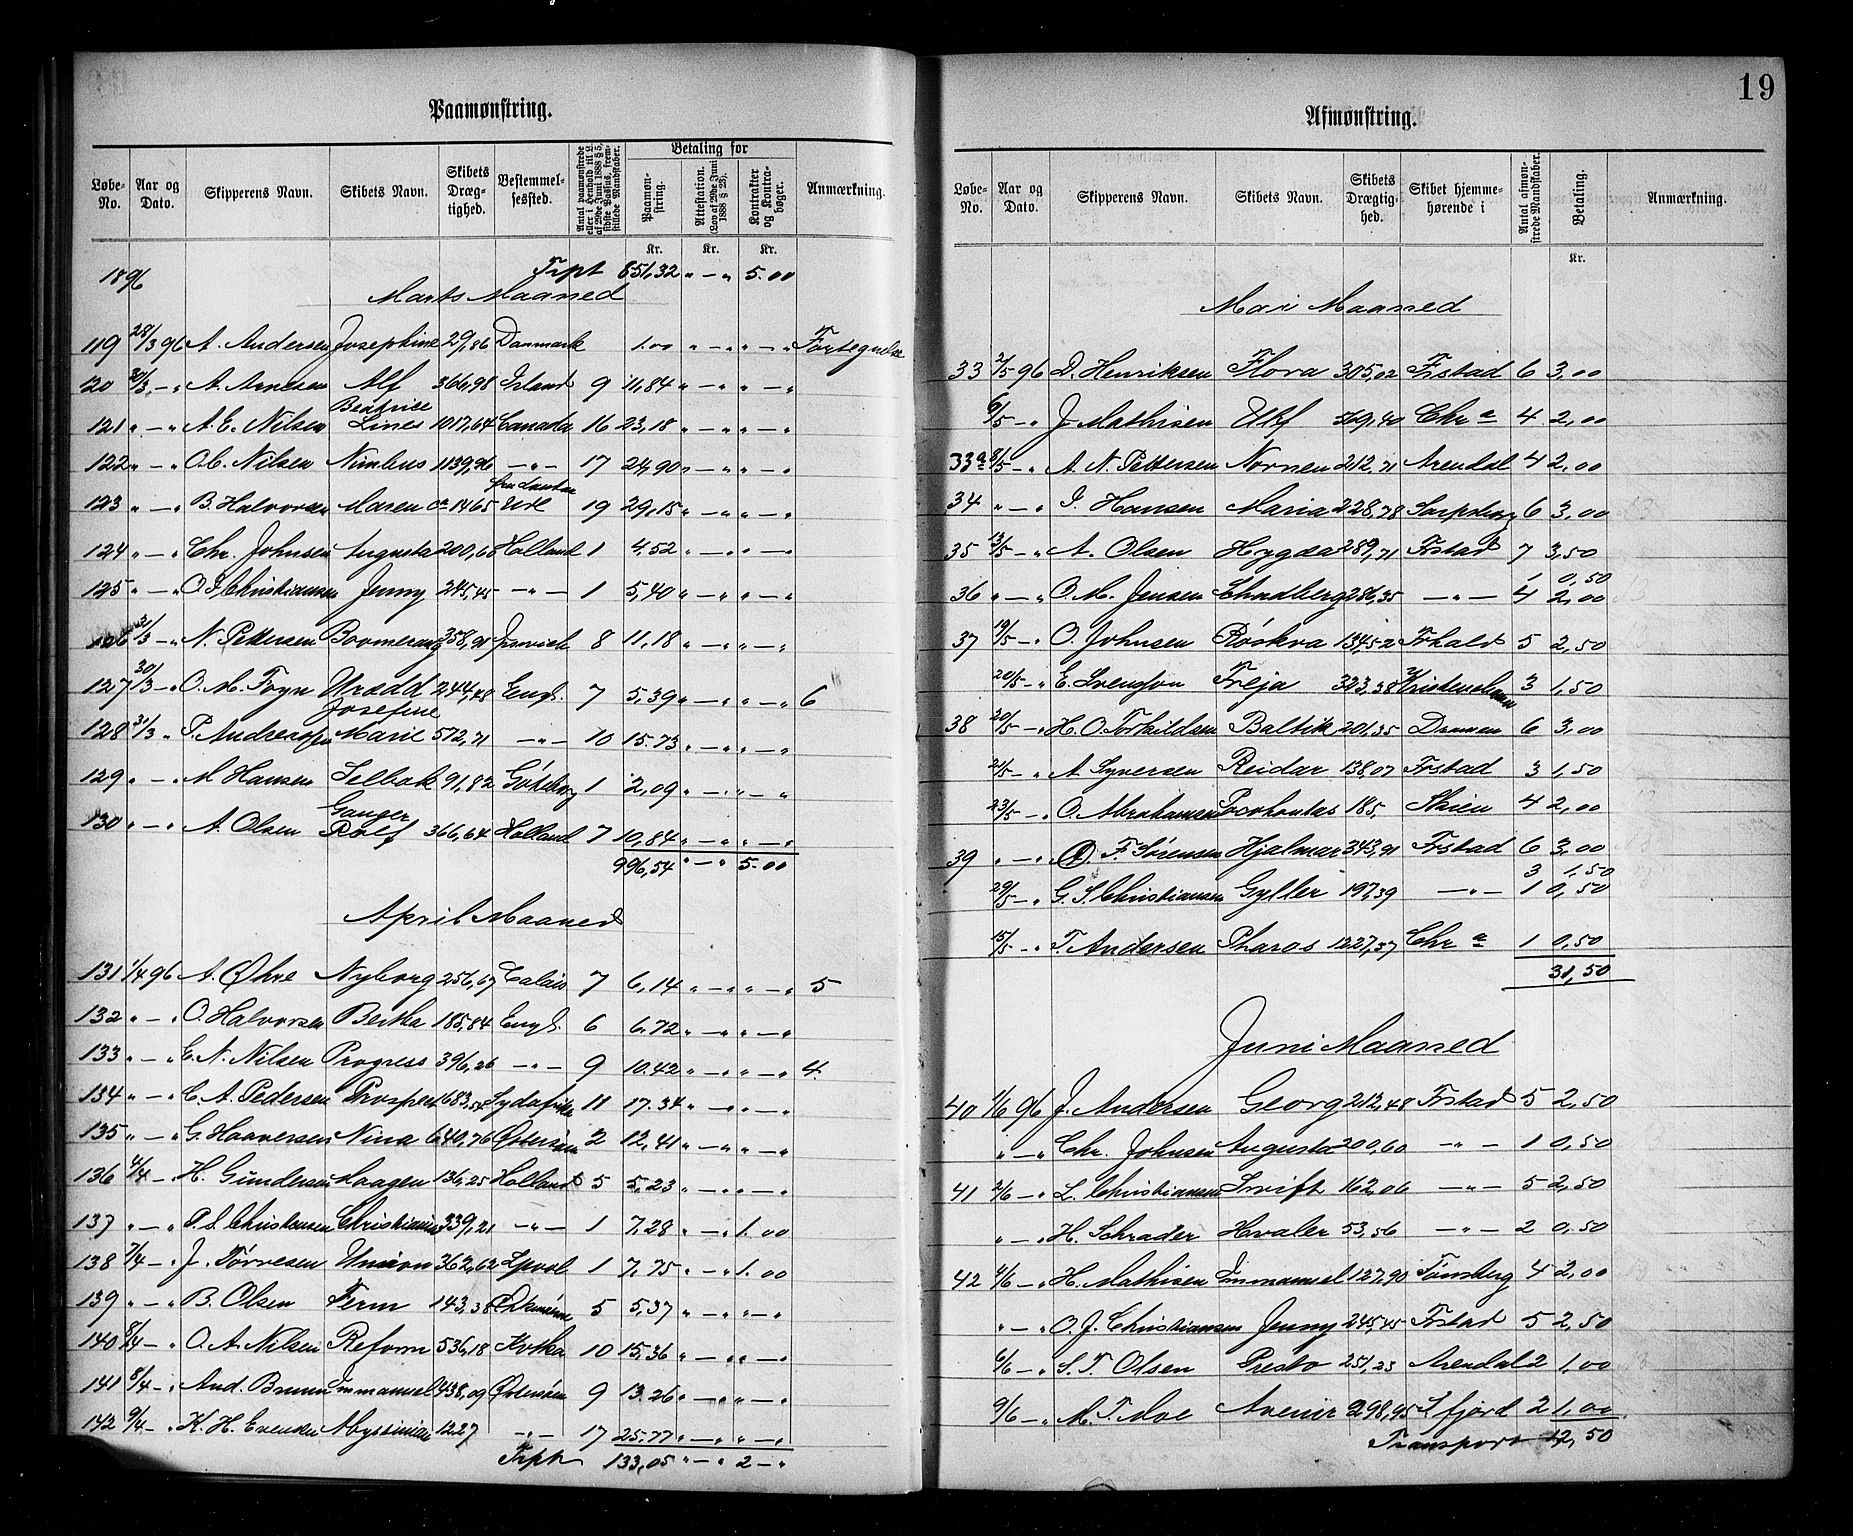 19
Paamønstring.
Løbe-No. Aar og Dato. Skipperens Navn. Skibets Navn. Skibets Dræg-tighed. Bestemmel-sessted. Antal paamønstrede eller i Henhold til L. af 29de Juni 1888 § 5, sidste Passus, frem-stillede Mandskaber. Betaling for Paamøn-string. Attestation. (Lov af 29de Juni 1888 § 23). Kontrakter og Kontra-bøger. Anmærkning.
Kr. Kr. Kr.
1896 Trpt 851,32 " — " 5.00
Marts Maaned
119 28/3 96 A. Andersen Josephine 29,86 Danmark 1.00 " — " " — " Fortegnelse
120 30/3 - " A. Arnesen Alf 366,98 Irland 9 11,84 " — " " — "
121 " — " A. E. Nilsen Beatrice Lines 1017,64 Canada 16 23,18 " — " " — "
122 " — " O. C. Nilsen Nimbus 1139,96 — " — 17 24,90 " — " " — "
123 " — " B. Halvorsen Maren ca 1465 19 29,15 " — " " — "
124 " — " Chr. Johnsen Augusta 200,60 Holland 1 4.52 " — " " — "
125 " — " O. J. Christiansen Jenny 245,45 — " — 1 5,40 " — " " — "
126 31/3 - " N. Pettersen Boomerang 358,91 Ipswich 8 11,18 " — " " — "
127 30/3 - " O. M. Foyn Urædd 244,48 Engl. 7 5,39 " — " " — " 6
128 31/3 " P. Andreasen Josefine Marie 572,71 — " — 10 15.73 " — " " — "
129 " — " M Hansen Selbak 91,82 Göteborg 1 2,09 " — " " — "
130 " — " A. Olsen Ganger Rolf 366,64 Holland 7 10,84 " — " " — "
996,54 " — " 5.00
April Maaned
131 1/4 96 A. Øhre Nyborg 256,67 Calais 7 6,14 " — " " — " 5
132 " — " O. Halvorsen Bertha 185,84 Engl. 6 6.72 " — " " — "
133 " — " E. N. Nilsen Progress 396,26 — " — 9 10.42 " — " " — " 4.
134 " — " C. A. Pedersen Prosper 683,54 Sydafrika 11 17.34 " — " " — "
135 " — " G. Haaversen Nina 640,76 Østersøen 2 12,41 " — " " — "
136 4/4 - " H. Gundersen Haagen 136,25 Holland 5 5,23 " — " " — "
137 " — " P. S. Christensen Christiania 339,21 — " — 1 7.28 " — " 1.00
138 7/4 - " J. Tørresen Union 362,62 Lpool 1 7,75 " — " 1.00
139 " — " B. Olsen Ferm 143,38 5 5,37 " — " " — "
140 8/4 - " O. A. Nilsen Reform 536,18 Kotka 10 15,36 " — " " — "
141 8/4 - " And. Bruun Immanuel 438,09 Østersøen 9 13.26 " — " " — "
142 9/4 - " K. H. Evensen Abyssinian 1227 — " — 17 25,77 " — " " — "
Trpt 133,05 " — " 2 - "
Afmønstring.
Løbe-No. Aar og Dato. Skipperens Navn. Skibets Navn. Skibets Drægtig-hed. Skibet hjemme-hørende i Antal afmøn-strede Mandskaber. Betaling. Anmærkning.
Kr.
Mai Maaned
33 2/5 96 D. Henriksen Flora 305,02 Frstad 6 3,00
6/5 - " J. Mathisen Ulf 569,40 Chr a 4 2,00
33a 8/5 - " A. N. Pettersen Nornen 212,71 Arendal 4 2,00
34 " — " I. Hansen Maria 228,78 Sarpsborg 6 3,00
35 13/5 - " A. Olsen Hygæa 289,71 Frstad 7 3,50
1 0,50
36 " — " O. M. Jensen Lindberg 286,35 — " — 4 2,00
37 19/5 - " O. Johnsen Röskva 134,52 Frhald 5 2,50
20/5 - " E. Svensson Freja 323,38 3 1,50
38 20/5 - " H. O. Torkildsen Baltik 201,35 Dramen 6 3,00
21/5 - " A. Syversen Reidar 138,07 Frstad 3 1,50
23/5 - " O. Abrahamsen Pocohontas 185, Skien 4 2,00
39 " — " O. F. Sørensen Hjalmar 343,91 Frstad 6 3,00
3 1,50
29/5 - " G. S. Christiansen Gyller 197,39 — " — 1 0,50
15/5 - " T. Andersen Pharos 1227,37 Chr a 1 0,50
31,50
Juni Maaned
40 1/6 96 J. Andersen Georg 212,48 Frstad 5 2,50
" — " Chr. Johnsen Augusta 200,60 — " — 1 0,50
41 2/6 - " L. Christiansen Swift 162,06 — " — 5 2,50
" — " H. Schrader Hvaler 53,56 — " — 2 0,50
42 4/6 - " H. Mathisen Immanuel 127,90 Tønsberg 4 2,00
" — " O. J. Christiansen Jenny 245,45 Frstad 5 2,50
6/6 - " S. T. Olsen Presto 251,23 Arendal 2 1,00
9/6 - " M. T. Moe Avenir 298,95 S fjord 2 1,00
Transport 12,50